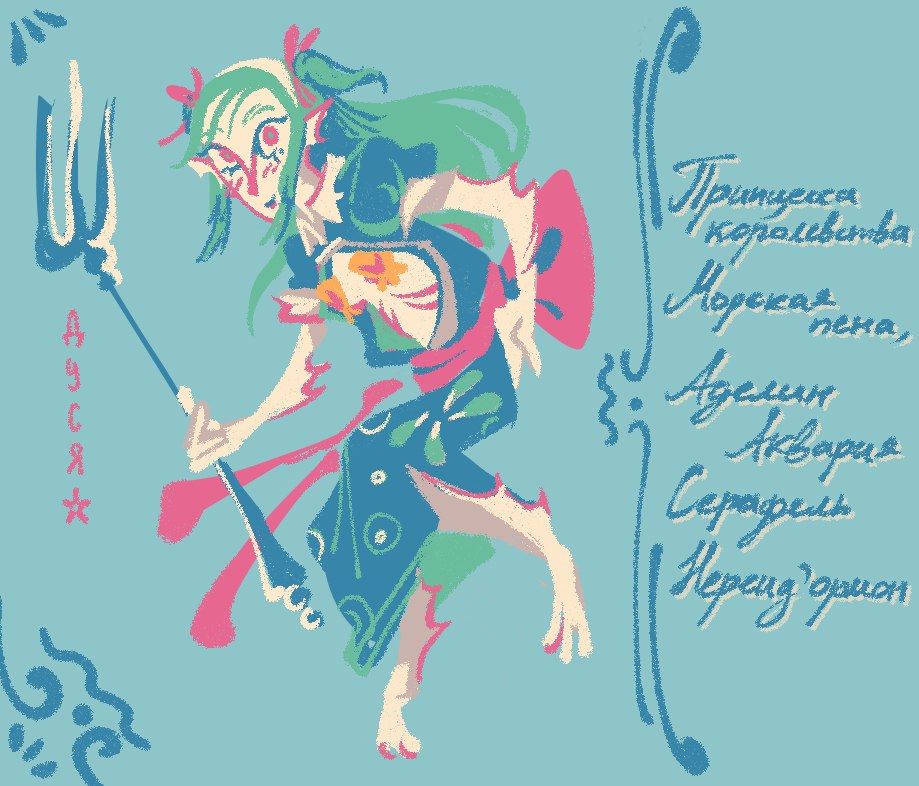 ДУСЯ
Принцесса
королевства
Морская
пена,
Аделин
Аквария
Серафель
Нереид'орион